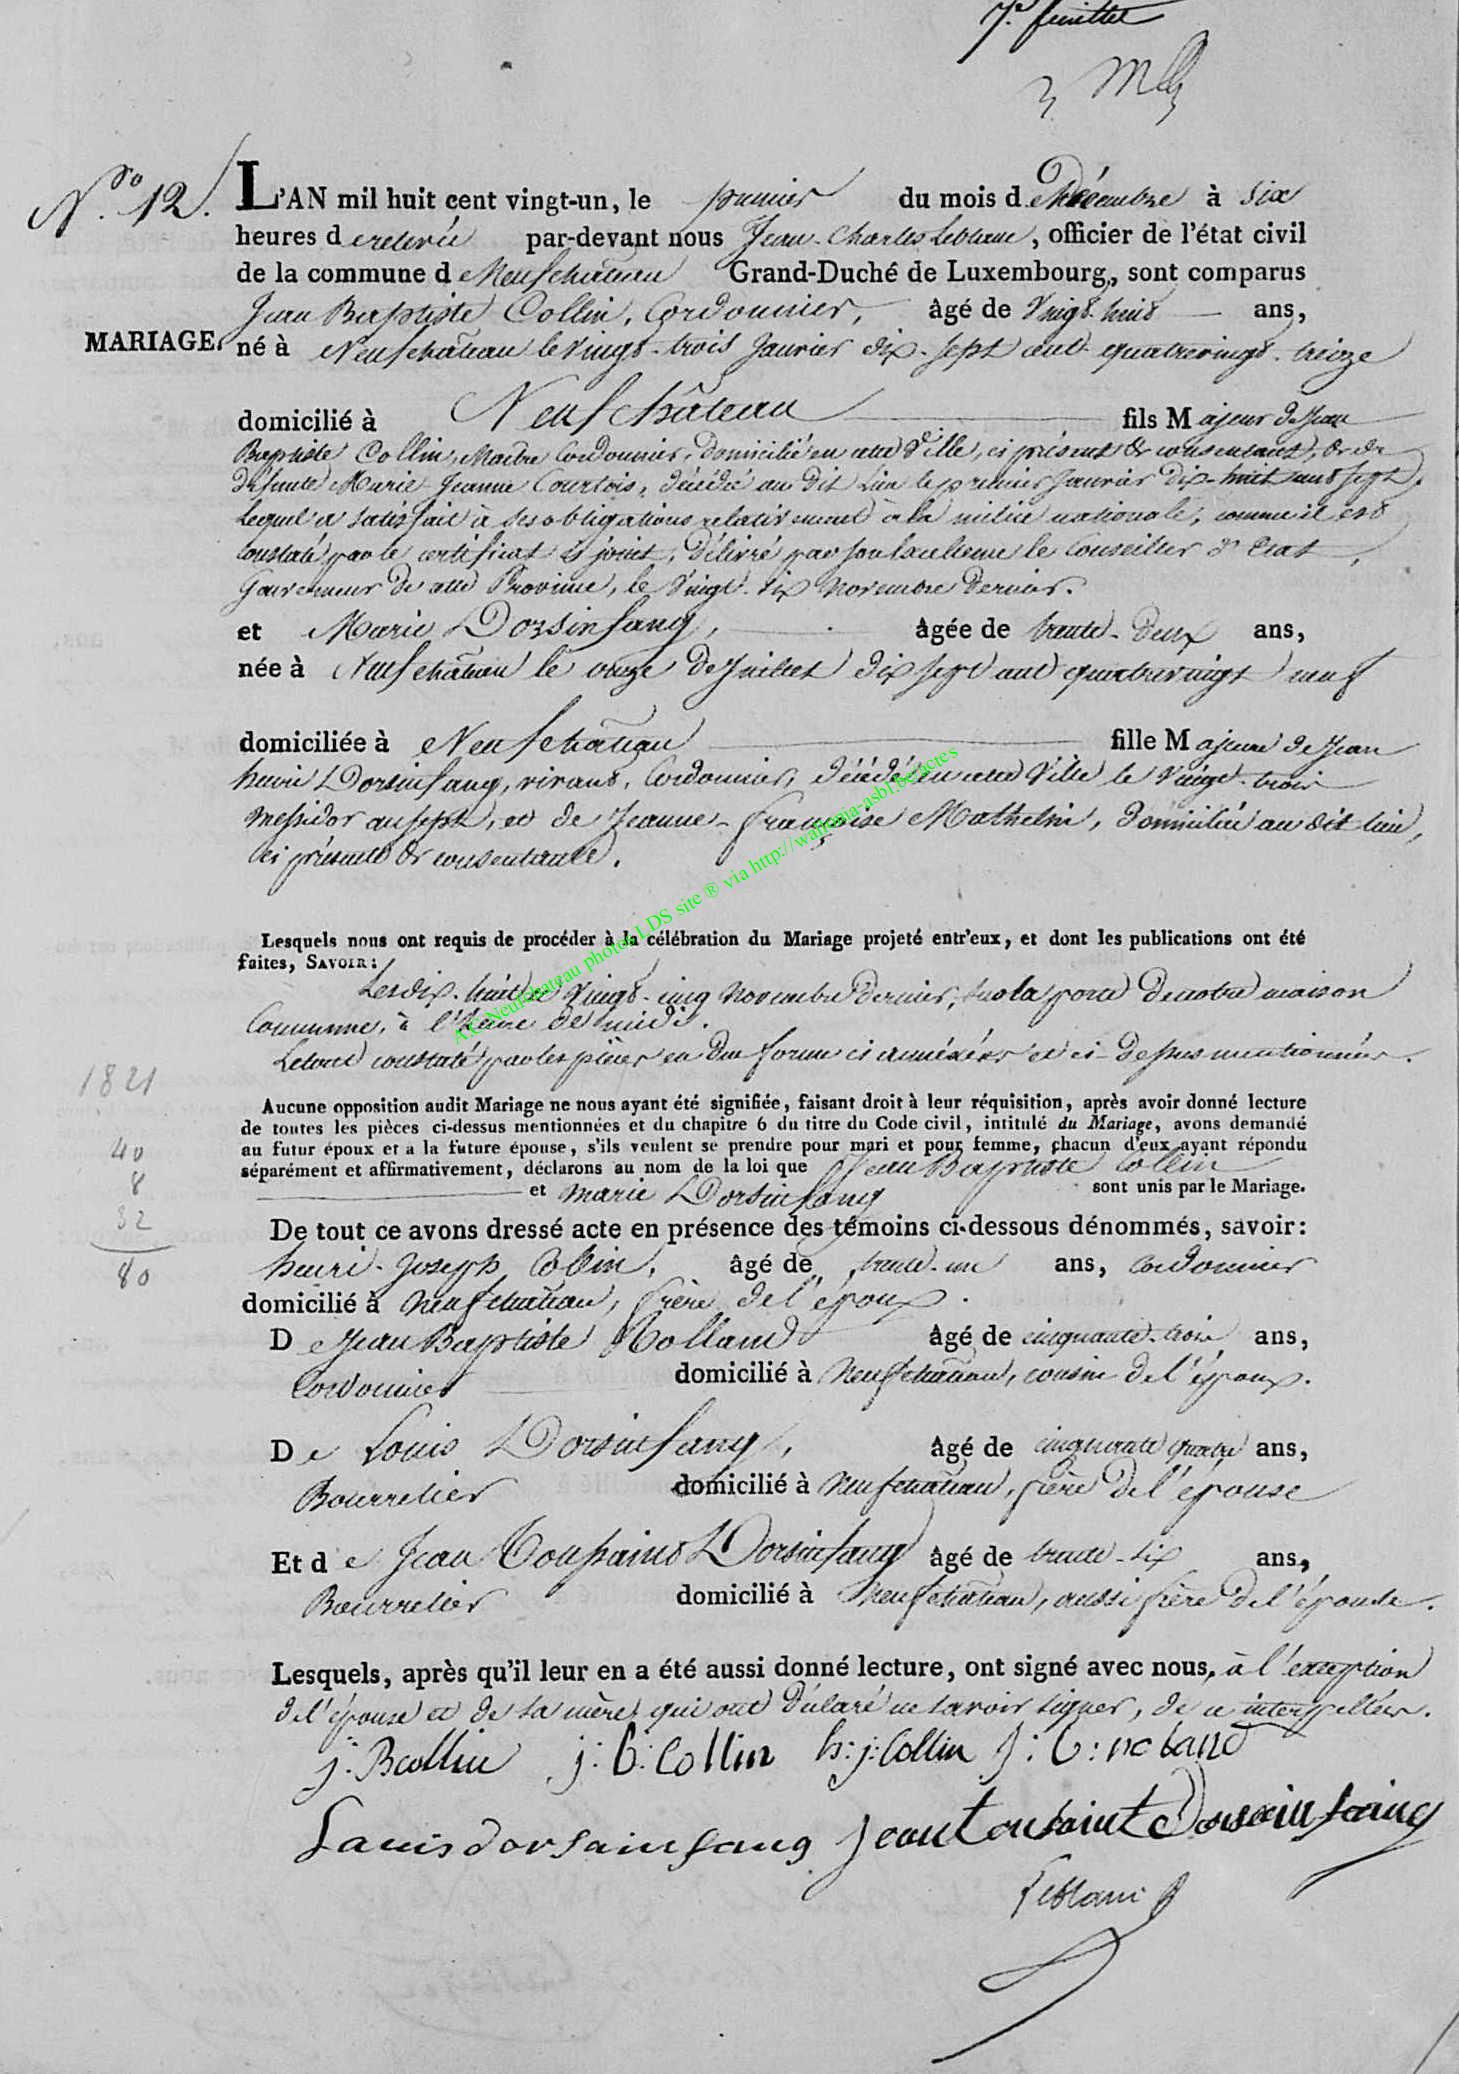 7e. feuillet
No. 12.
L'AN mil huit cent vingt-un, le premier du mois de Décembre à six
heures de relevée par-devant nous Jean-Charles Leblanc, officier de l'état civil
de la commune de Neufchâteau Grand-Duché de Luxembourg, sont comparus
Jean Baptiste Collin, Cordonnier, âgé de Vingt-huit ans,
MARIAGE. né à Neufchâteau le Vingt-trois Janvier dix-sept cent quatrevingt-treize
domicilié à Neufchâteau fils Majeur de Jean
Baptiste Collin, Maître Cordonnier, domicilié en cette Ville, ci présent & consentant, & de
défunte Marie Jeanne Courtois, décédée au dit Lieu le premier Janvier dix-huit cent sept,
Lequel a satisfait à ses obligations relativement à la milice nationale, comme il est
Constaté par le certificat ci joint, Délivré par son Excellence le Conseiller d'Etat,
Gouverneur de cette Province, le Vingt-six Novembre dernier.
et Marie Dorsinfang, âgée de trente-Deux ans,
née à Neufchâteau le onze de Juillet dix sept cent quatrevingt neuf
domiciliée à Neufchâteau fille Majeure de Jean
henri Dorsinfang, vivant, Cordonnier, décédé en cette Ville le Vingt-trois
Messidor an sept, et de Jeanne-françoise Mathelin, domiciliée au dit lieu,
ci présente & consentante.
A.C.Neufchateau photos LDS site ® via http://wallonia-asbl.be/actes
Lesquels nous ont requis de procéder à la célébration du Mariage projeté entr'eux, et dont les publications ont été
faites, SAVOIR:
Les dix-huit & Vingt-cinq Novembre Dernier, sur la porte de notre maison
Commune, à l'heure de midi.
Le tout constaté par les pièces en due forme ci annéxées et ci-dessus mentionnées.
1821
Aucune opposition audit Mariage ne nous ayant été signifiée, faisant droit à leur réquisition, après avoir donné lecture
de toutes les pièces ci-dessus mentionnées et du chapitre 6 du titre du Code civil, intitulé du Mariage, avons demandé
au futur époux et a la future épouse, s'ils veulent se prendre pour mari et pour femme, chacun d'eux ayant répondu
séparément et affirmativement, déclarons au nom de la loi que Jean Baptiste Collin
et Marie Dorsinfang sont unis par le Mariage.
40
8
32
80
De tout ce avons dressé acte en présence des témoins ci-dessous dénommés, savoir:
henri-Joseph Collin, âgé de trente-un ans, Cordonnier
domicilié à Neufchâteau, frère de l'époux.
De Jean Baptiste Nolland âgé de cinquante-trois ans,
Cordonnier domicilié à Neufchâteau, cousin de l'époux.
De Louis Dorsinfang, âgé de cinquante quatre ans,
Bourrelier domicilié à Neufchâteau, frère de l'épouse
Et de Jean Toussaint Dorsinfang âgé de trente-six ans,
Bourrelier domicilié à Neufchâteau, aussi frère de l'épouse.
Lesquels, après qu'il leur en a été aussi donné lecture, ont signé avec nous, à l'exception
de l'épouse et de sa mère, qui ont déclaré ne savoir signer, de ce interpellées.
j: Bcollin j: b: Collin h: j: Collin J: b: noland
Louis dorsainfang Jean tousaint Dorsainfaing
Leblanc